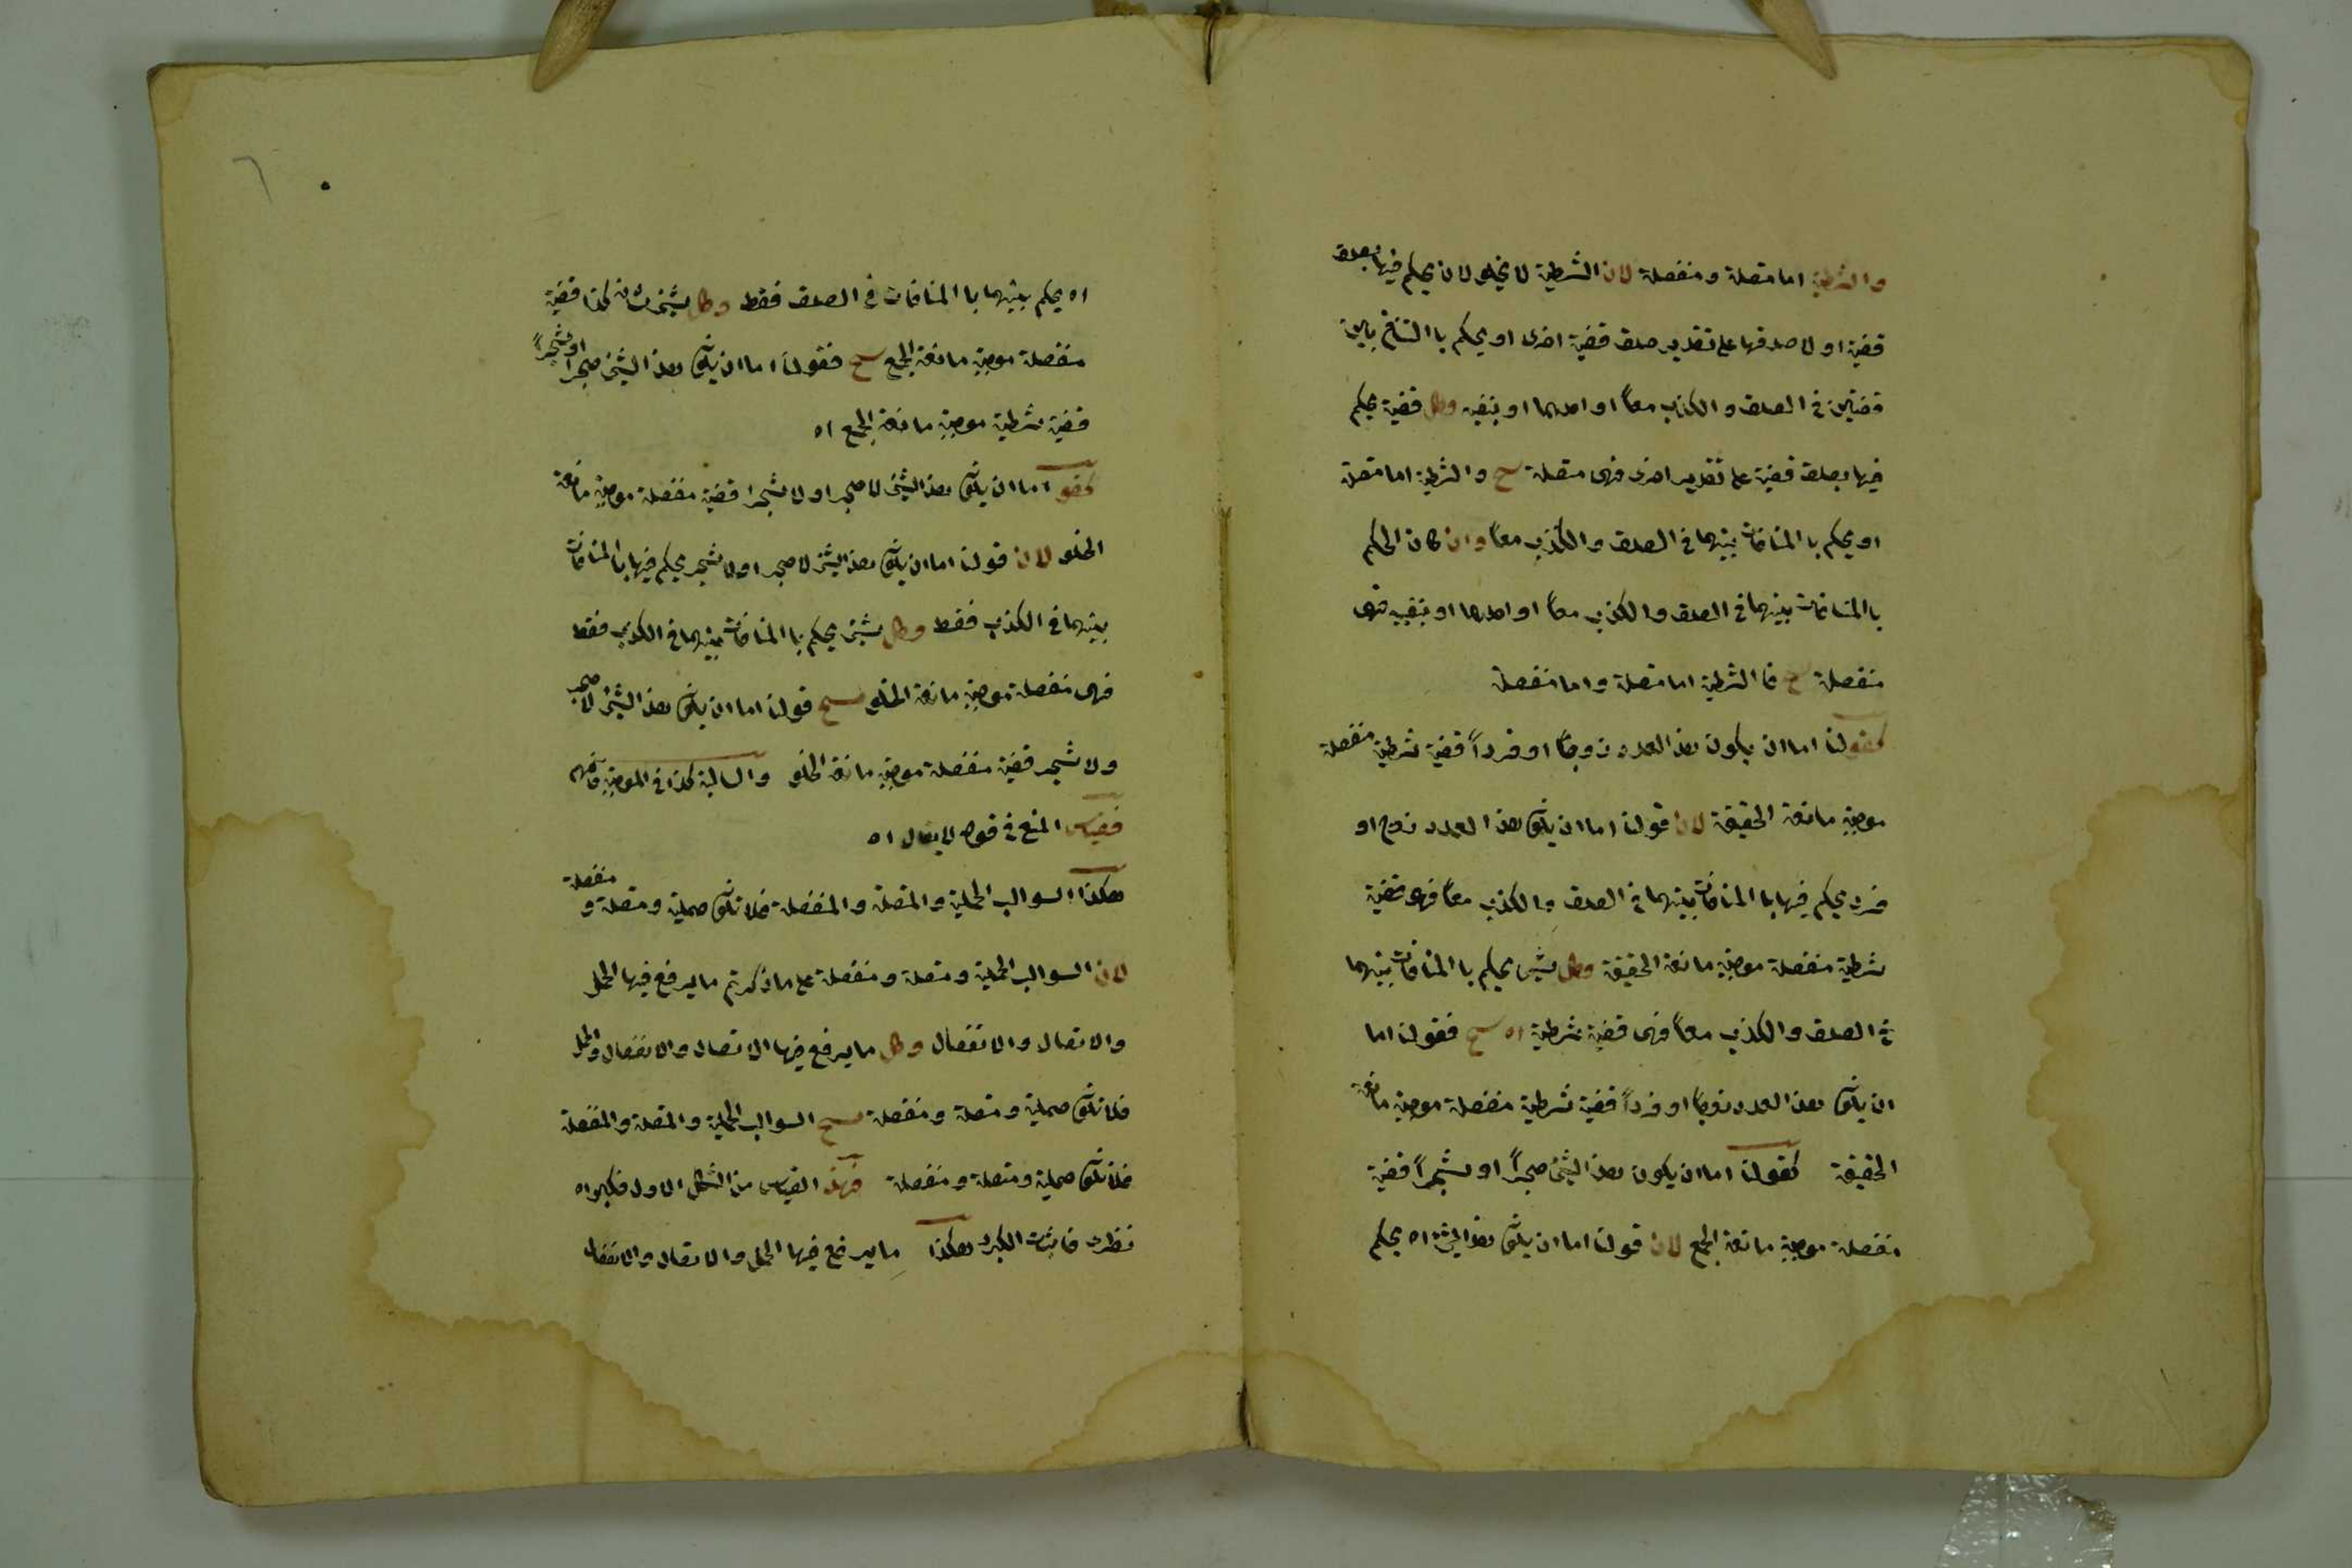 والشرطية اما متصلة ومنفصلة لان الشرطية لا يخلو لان يحكم فيها بصدق
قضية او لا صدقها على تقدير صدق قضية اخرى او يحكم با التنافى بين
قضيتين فى الصدق والكذب معاً او احدهما او بنفيه وكل قضية يحكم
فيها بصدق قضية على تقدير اخرى فهى متصلة سج والشرطية اما متصلة
او يحكم با المنافات بينهما فى الصدق والكذب معاً وان كان الحكم
با المنافات بينهما فى الصدق والكذب معاً او احدهما او بنفيه فهى
منفصلة سج فا الشرطية اما متصلة واما منفصلة
كقولنا اما ان يكون هذا العدد زوجاً او فرداً قضية شرطية منفصلة
موجبة مانعة الحقيقة لان قولنا اما ان يكون هذا العدد زوج او
فرد يحكم فيها با المنافات بينهما فى الصدق والكذب معاً فهى قضية
شرطية منفصلة موجبة مانعة الحقيقة وكل شيئ يحكم با المنافات بينهما
فى الصدق والكذب معاً فهى قضية شرطية اه سج فقولنا اما
ان يكون هذا العدد زوجاً او فرداً قضية شرطية منفصلة موجبة مانعة
الحقيقة كقولنا اما ان يكون هذا الشئ حجراً او شجراً قضية
منفصلة موجبة مانعة الجمع لان قولنا اما ان يكون هذا الشئ اه يحكم
٦
اه يحكم بينهما با المنافات فى الصدق فقط وكل شيئ شانه كذا قضية
منفصلة موجبة مانعة الجمع سج فقولنا اما ان يكون هذا الشيئ حجرا او شجراً
قضية شرطية موجبة مانعة الجمع اه
كقو اما ان يكون هذا الشيئ لا حجرا ولا شجرا قضية منفصلة موجبة مانعة
الخلو لان قولنا اما ان يكون هذا الشئ لا حجر او لا شجر يحكم فيها با المنافات
بينهما فى الكذب فقط وكل شيئ يحكم با المنافات بينهما فى الكذب فقط
فهى منفصلة موجبة مانعة الخلو سج قولنا اما ان يكون هذا الشيئ لا حجر
ولا شجر قضية منفصلة موجبة مانعة الخلو والسالبة كذا فى الموجبة فافهم
فقياس المنع فى قوله لا يقال اه
هكذا السوالب الحملية والمتصلة والمنفصلة فلا تكون حملية ومتصلة ومنفصلة
لان السوالب الحملية ومتصلة ومنفصلة على ما ذكرتم ما يرفع فيها الحمل
والاتصال والانفصال وكل ما يرفع فيها الاتصال والانفصال والحمل
فلا تكون حملية ومتصلة ومنفصلة سج السوالب الحملية والمتصلة والمنفصلة
فلا تكون حملية ومتصلة ومنفصلة فهذا القياس من الشكل الاول فكبراه
نظرى فاثبات الكبرى هكذا ما يرفع فيها الحمل والاتصال والانفصال